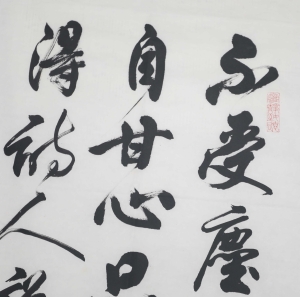 不受塵
自甘心只
得詩人